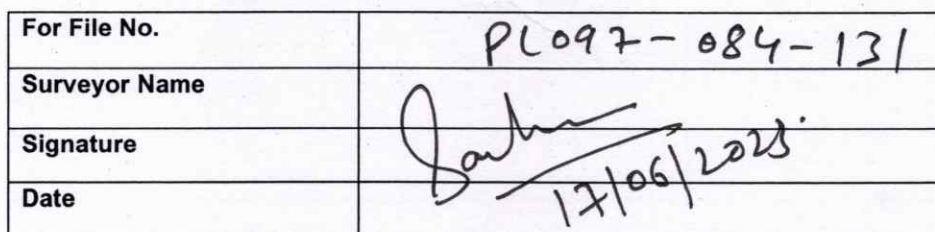 For File No. PL097-084-131
Surveyor Name
Signature
Date 17/06/2023